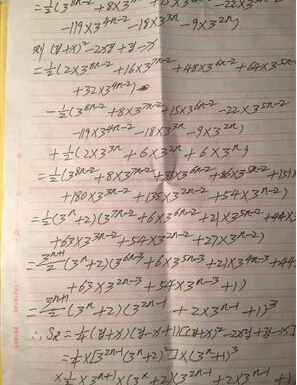 =½(3^{8n-2}+8×3^{7n-2}+15×3^{6n-2}-22×3^{5n-2}
-119×3^{4n-2}-18×3^{3n}-9×3^{2n})
则 (y+x)²-2xy+y-x
=½(2×3^{8n-2}+16×3^{7n-2}+48×3^{6n-2}+64×3^{5n-2}
+32×3^{4n-2})
-½(3^{8n-2}+8×3^{7n-2}+15×3^{6n-2}-22×3^{5n-2}
-119×3^{4n-2}-18×3^{3n}-9×3^{2n})
+½(2×3^{3n}+6×3^{2n}+6×3^{n})
=½(3^{8n-2}+8×3^{7n-2}+33×3^{6n-2}+86×3^{5n-2}+151
+180×3^{3n-2}+135×3^{2n-2}+54×3^{n-2})
=½(3^{n}+2)(3^{7n-2}+6×3^{6n-2}+21×3^{5n-2}+44×3
+63×3^{3n-2}+54×3^{2n-2}+27×3^{n-2})
=3^{n+1}/2(3^{n}+2)(3^{6n-3}+6×3^{5n-3}+21×3^{4n-3}+44
+63×3^{2n-3}+54×3^{n-3}+1)
=3^{n+1}/2(3^{n}+2)(3^{2n-1}+2×3^{n-1}+1)³
∴ =¼(y+x)(y-x+1)[(y+x)²-2xy+y-x]
=¼×[3^{2n-1}(3^{n}+2)²]×(3^{n}+1)³
×½×3^{n+1}×(3^{n}+2)(3^{2n-1}+2×3^{n-1}+1)